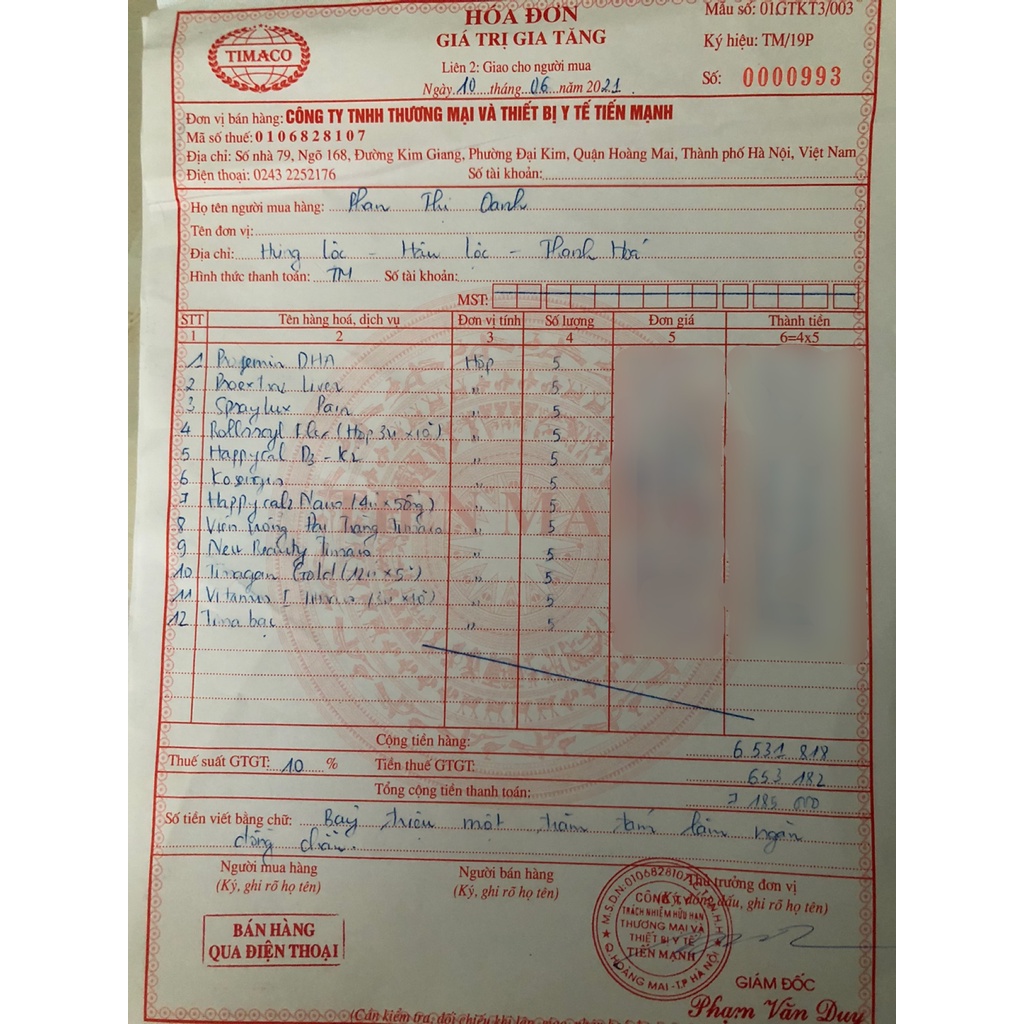 TIMACO
HÓA ĐƠN
GIÁ TRỊ GIA TĂNG
Liên 2: Giao cho người mua
Ngày 10 tháng 06 năm 2021
Mẫu số: 01GTKT3/003
Ký hiệu: TM/19P
Số: 0000993
Đơn vị bán hàng: CÔNG TY TNHH THƯƠNG MẠI VÀ THIẾT BỊ Y TẾ TIẾN MẠNH
Mã số thuế: 0106828107
Địa chỉ: Số nhà 79, Ngõ 168, Đường Kim Giang, Phường Đại Kim, Quận Hoàng Mai, Thành phố Hà Nội, Việt Nam
Điện thoại: 0243 2252176 Số tài khoản:
Họ tên người mua hàng: Phan Thị Oanh
Tên đơn vị:
Địa chỉ: Hưng Lộc - Hậu Lộc - Thanh Hoá
Hình thức thanh toán: TM Số tài khoản:
MST:
STT Tên hàng hoá, dịch vụ Đơn vị tính Số lượng Đơn giá Thành tiền
1 2 3 4 5 6=4x5
1 DHA Hộp 5
2 Liver " 5
3 Spraylux Pain " 5
4 (Hộp 3vỉ x10v) " 5
5 Happycal D3 - K2 " 5
6 " 5
7 Happycale Nano (4vỉ x 5ống) " 5
8 Viên Tràng Timaco " 5
9 New Beauty Timaco " 5
10 Timagan Gold (12vỉ x 5v) " 5
11 " 5
12 Tima bạc " 5
Cộng tiền hàng: 6 531 818
Thuế suất GTGT: 10 % Tiền thuế GTGT: 653 182
Tổng cộng tiền thanh toán: 7 185 000
Số tiền viết bằng chữ: Bảy triệu một trăm tám lăm ngàn
đồng chẵn.
Người mua hàng
(Ký, ghi rõ họ tên)
Người bán hàng
(Ký, ghi rõ họ tên)
Thủ trưởng đơn vị
(Ký, đóng dấu, ghi rõ họ tên)
BÁN HÀNG
QUA ĐIỆN THOẠI
M.S.D.N:0106828107
CÔNG TY
TRÁCH NHIỆM HỮU HẠN
THƯƠNG MẠI VÀ
THIẾT BỊ Y TẾ
TIẾN MẠNH
Q.HOÀNG MAI - T.P HÀ NỘI
GIÁM ĐỐC
Phạm Văn Duy